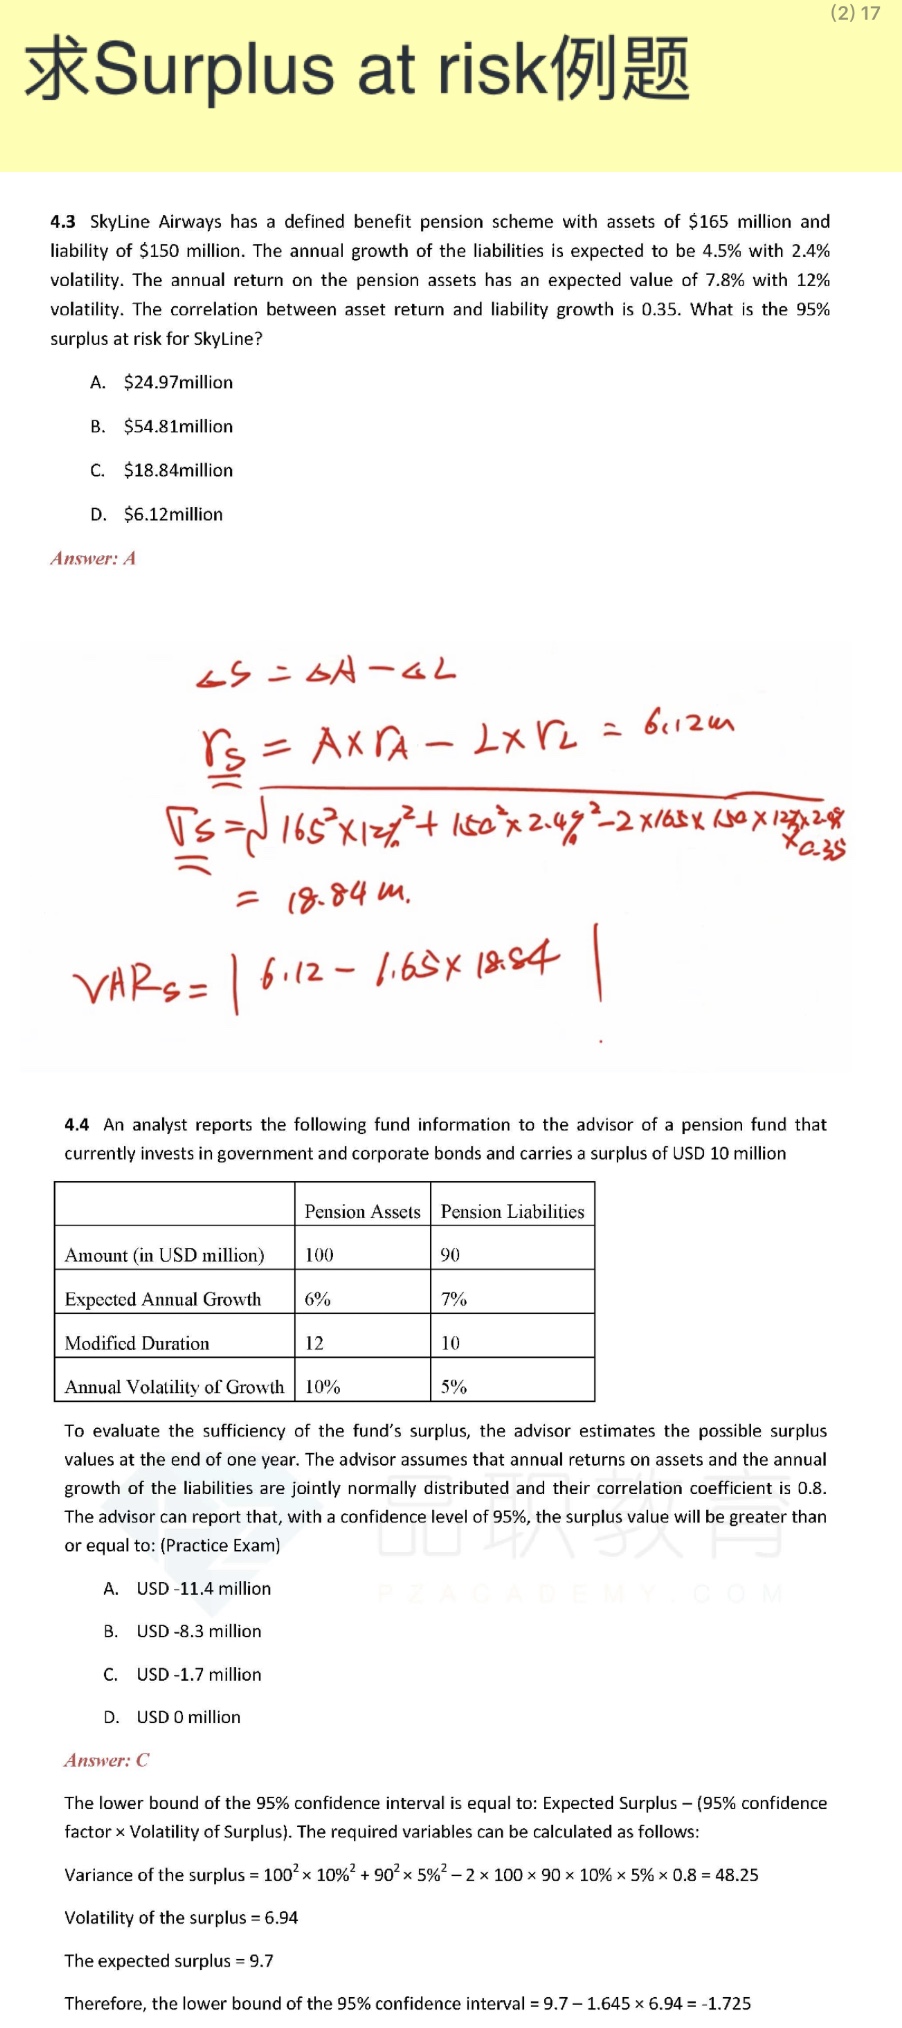 (2) 17
求Surplus at risk例题
4.3 SkyLine Airways has a defined benefit pension scheme with assets of $165 million and
liability of $150 million. The annual growth of the liabilities is expected to be 4.5% with 2.4%
volatility. The annual return on the pension assets has an expected value of 7.8% with 12%
volatility. The correlation between asset return and liability growth is 0.35. What is the 95%
surplus at risk for SkyLine?
A. $24.97million
B. $54.81million
C. $18.84million
D. $6.12million
Answer: A
ΔS = ΔA − ΔL
rs = A×rA − L×rL = 6.12m
σs = √165²×12%²+150²×2.4%²−2×165×150×12%×2.4%
×0.35
= 18.84 m.
VARs = | 6.12 − 1.65× 18.84 |
4.4 An analyst reports the following fund information to the advisor of a pension fund that
currently invests in government and corporate bonds and carries a surplus of USD 10 million
Pension Assets Pension Liabilities
Amount (in USD million) 100 90
Expected Annual Growth 6% 7%
Modified Duration 12 10
Annual Volatility of Growth 10% 5%
To evaluate the sufficiency of the fund's surplus, the advisor estimates the possible surplus
values at the end of one year. The advisor assumes that annual returns on assets and the annual
growth of the liabilities are jointly normally distributed and their correlation coefficient is 0.8.
The advisor can report that, with a confidence level of 95%, the surplus value will be greater than
or equal to: (Practice Exam)
品职教育
PZACADEMY.COM
A. USD -11.4 million
B. USD -8.3 million
C. USD -1.7 million
D. USD 0 million
Answer: C
The lower bound of the 95% confidence interval is equal to: Expected Surplus – (95% confidence
factor × Volatility of Surplus). The required variables can be calculated as follows:
Variance of the surplus = 100² × 10%² + 90² × 5%² – 2 × 100 × 90 × 10% × 5% × 0.8 = 48.25
Volatility of the surplus = 6.94
The expected surplus = 9.7
Therefore, the lower bound of the 95% confidence interval = 9.7 – 1.645 × 6.94 = -1.725